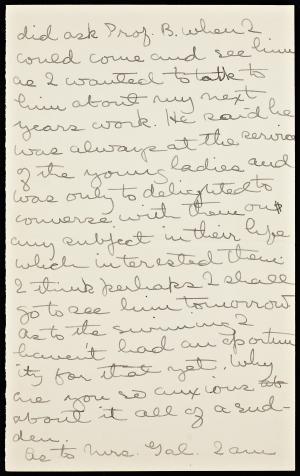 did ask Prof. B. when I
could come and see him
as I wanted to talk to
him about my next
years work. He said he
was always at the service
of the young ladies and
was only to delighted to
converse with them on
any subject in their life
which interested them.
I think perhaps I shall
go to see him tomorrow
as to the swimming I
haven't had an oportun
ity for that yet. Why
are you so anxious ab
about it all of a sud-
den.
As to Mrs. Gal. I am